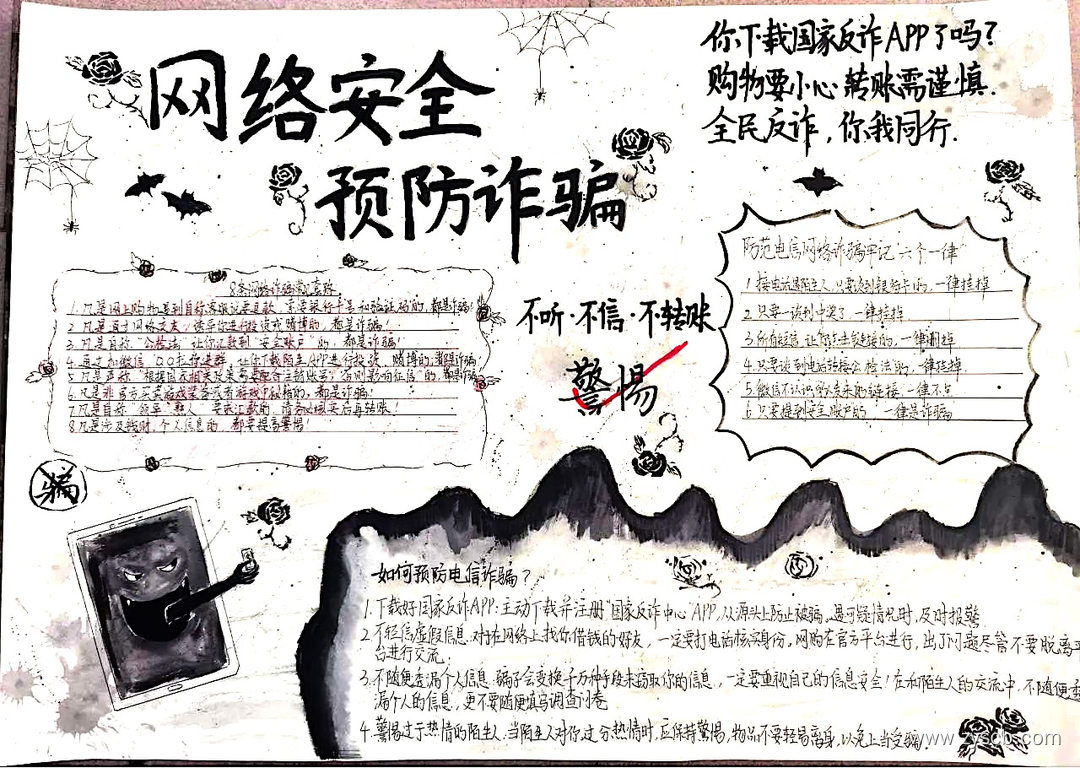 网络安全
预防诈骗
你下载国家反诈APP了吗?
购物要小心 转账需谨慎.
全民反诈,你我同行.
8条网络诈骗常见套路
1.凡是网上购物遇到自称客服说要退款,索要银行卡号和验证码的,都是诈骗!
2.凡是通过网络交友,诱导你进行投资或赌博的,都是诈骗!
3.凡是自称"公检法"让你汇款到"安全账户"的,都是诈骗!
4.通过加微信、QQ拉你进群,让你下载陌生APP进行投资、赌博的,都是诈骗!
5.凡是声称"根据国家相关政策需要配合注销账号,否则影响征信"的,都是诈骗!
6.凡是非官方买卖游戏装备或者游戏币的,都是诈骗!
7.凡是自称"领导""熟人"要求汇款的,请务必核实后再转账!
8.凡是涉及钱财,个人信息的,都要提高警惕!
不听·不信·不转账
警惕
防范电信网络诈骗牢记"六个一律"
1.接电话遇陌生人,只要谈到银行卡的,一律挂掉
2.只要一谈到中奖了,一律挂掉
3.所有短信,让你点击链接的,一律删掉
4.只要谈到电话转接公检法的,一律挂掉
5.微信不认识的人发来的链接,一律不点
6.只要提到安全账户的,一律是诈骗
骗
如何预防电信诈骗?
1.下载好国家反诈APP:主动下载并注册"国家反诈中心"APP,从源头上防止被骗,遇可疑情况时,及时报警.
2.不轻信虚假信息.对于在网络上找你借钱的好友,一定要打电话核实身份,网购在官方平台进行,出了问题尽管不要脱离平
台进行交流.
3.不随便透漏个人信息.骗子会变换千万种手段来骗取你的信息,一定要重视自己的信息安全!在和陌生人的交流中,不随便透
漏个人的信息,更不要随便填写调查问卷
4.警惕过于热情的陌生人:当陌生人对你过分热情时,应保持警惕,物品不要轻易离身,以免上当受骗